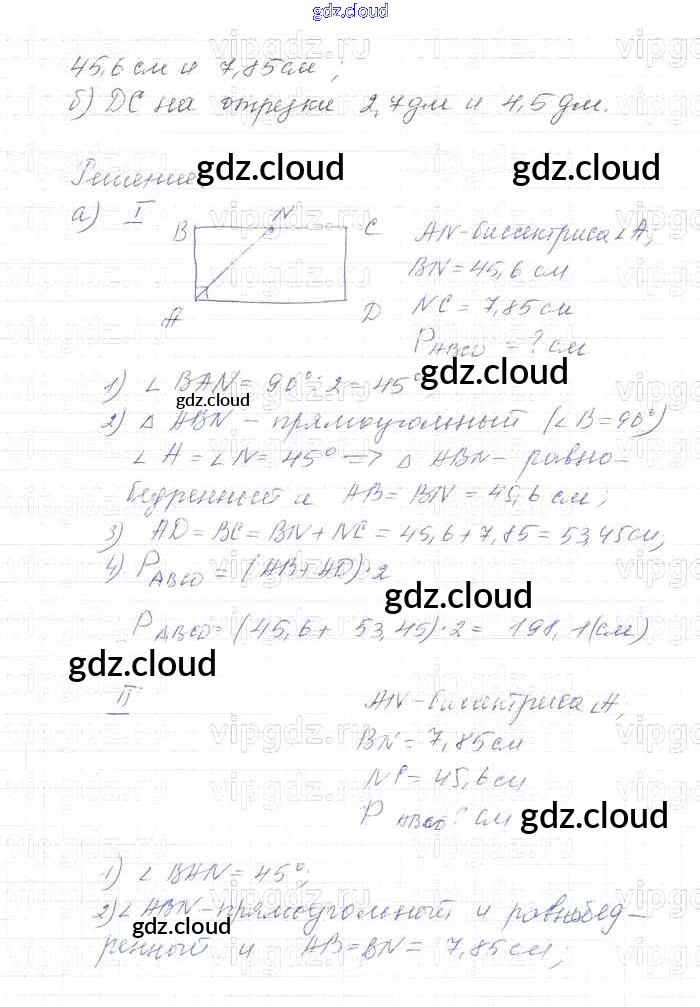 gdz.cloud
45,6 см и 7,85 см;
б) DC на отрезки 2,7 дм и 4,5 дм.
Решение
gdz.cloud gdz.cloud
а) I
B N C
A D
AN - биссектриса ∠A;
BN = 45,6 см
NC = 7,85 см
P ABCD = ? см
1) ∠ BAN = 90° : 2 = 45°;
gdz.cloud
2) △ ABN - прямоугольный (∠B = 90°)
∠ A = ∠ N = 45° => △ ABN - равно-
бедренный и AB = BN = 45,6 см;
3) AD = BC = BN + NC = 45,6 + 7,85 = 53,45 см;
4) P ABCD = (AB + AD) · 2
gdz.cloud
P ABCD = (45,6 + 53,45) · 2 = 198,1 (см)
gdz.cloud
II
AN - биссектриса ∠A;
BN = 7,85 см
NC = 45,6 см
P ABCD ? см
gdz.cloud
1) ∠ BAN = 45°;
2) ∠ ABN - прямоугольный и равнобед-
gdz.cloud
ренный и AB = BN = 7,85 см;